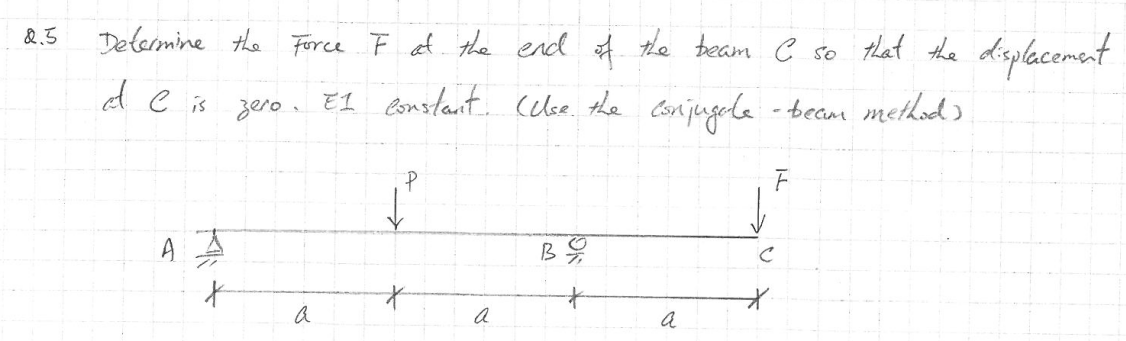 2.5 Determine the Force F at the end of the beam C so that the displacement
at C is zero. EI constant. (Use the conjugate-beam method)
P
F
A
B
C
a
a
a